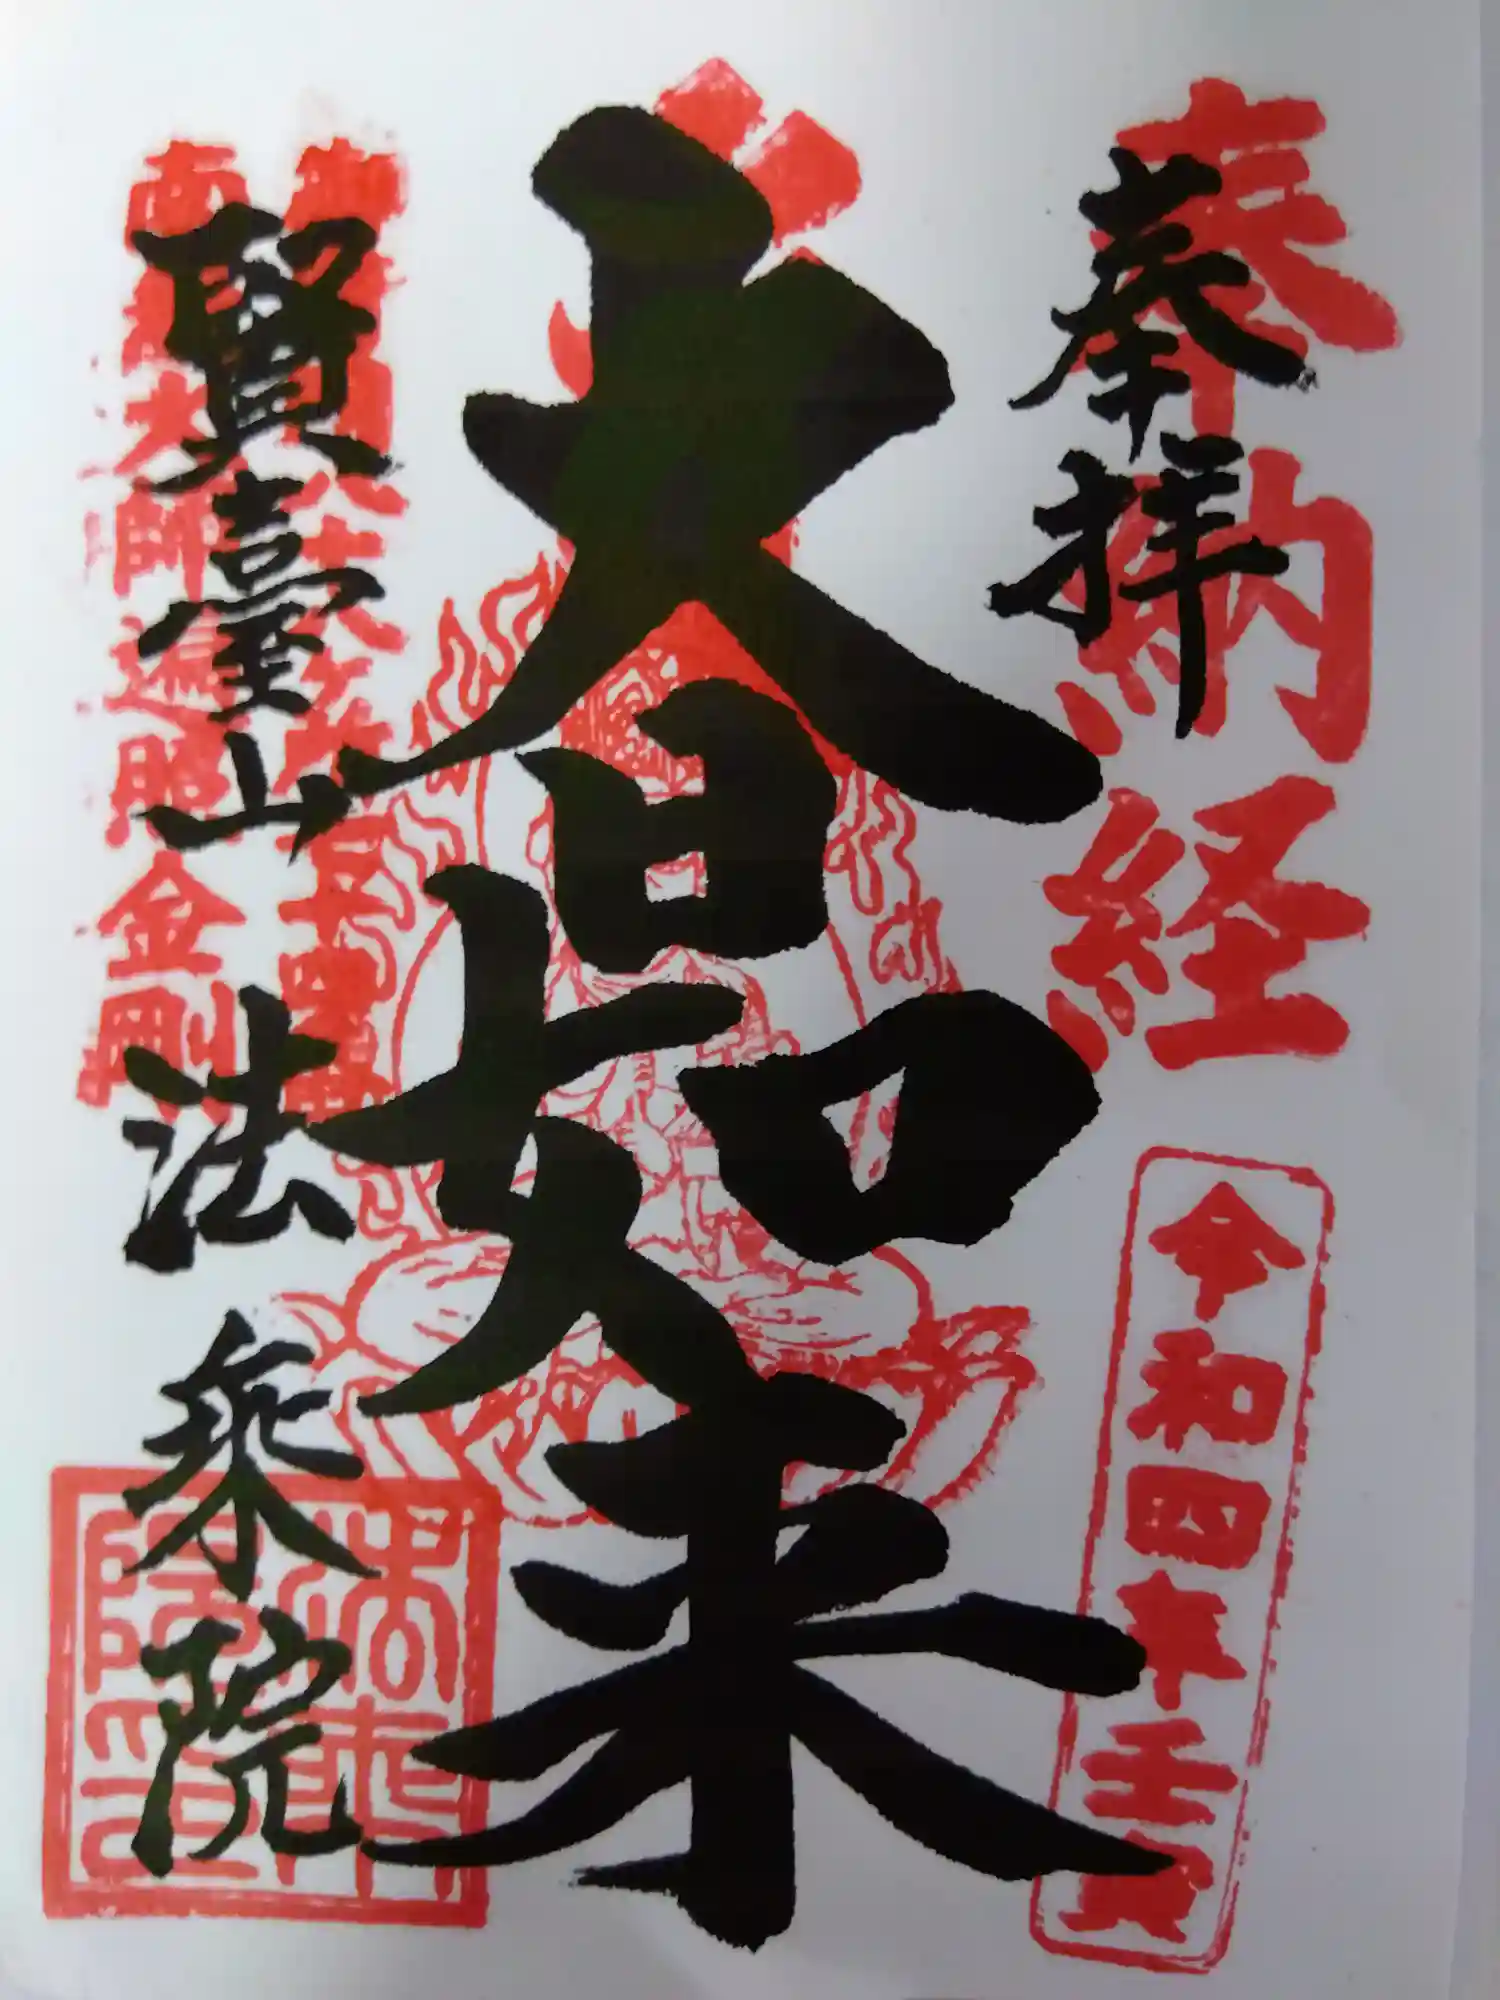 奉拝
奉納経
令和四年壬寅
大日如来
南無大師遍照金剛
賢臺山
法衆院